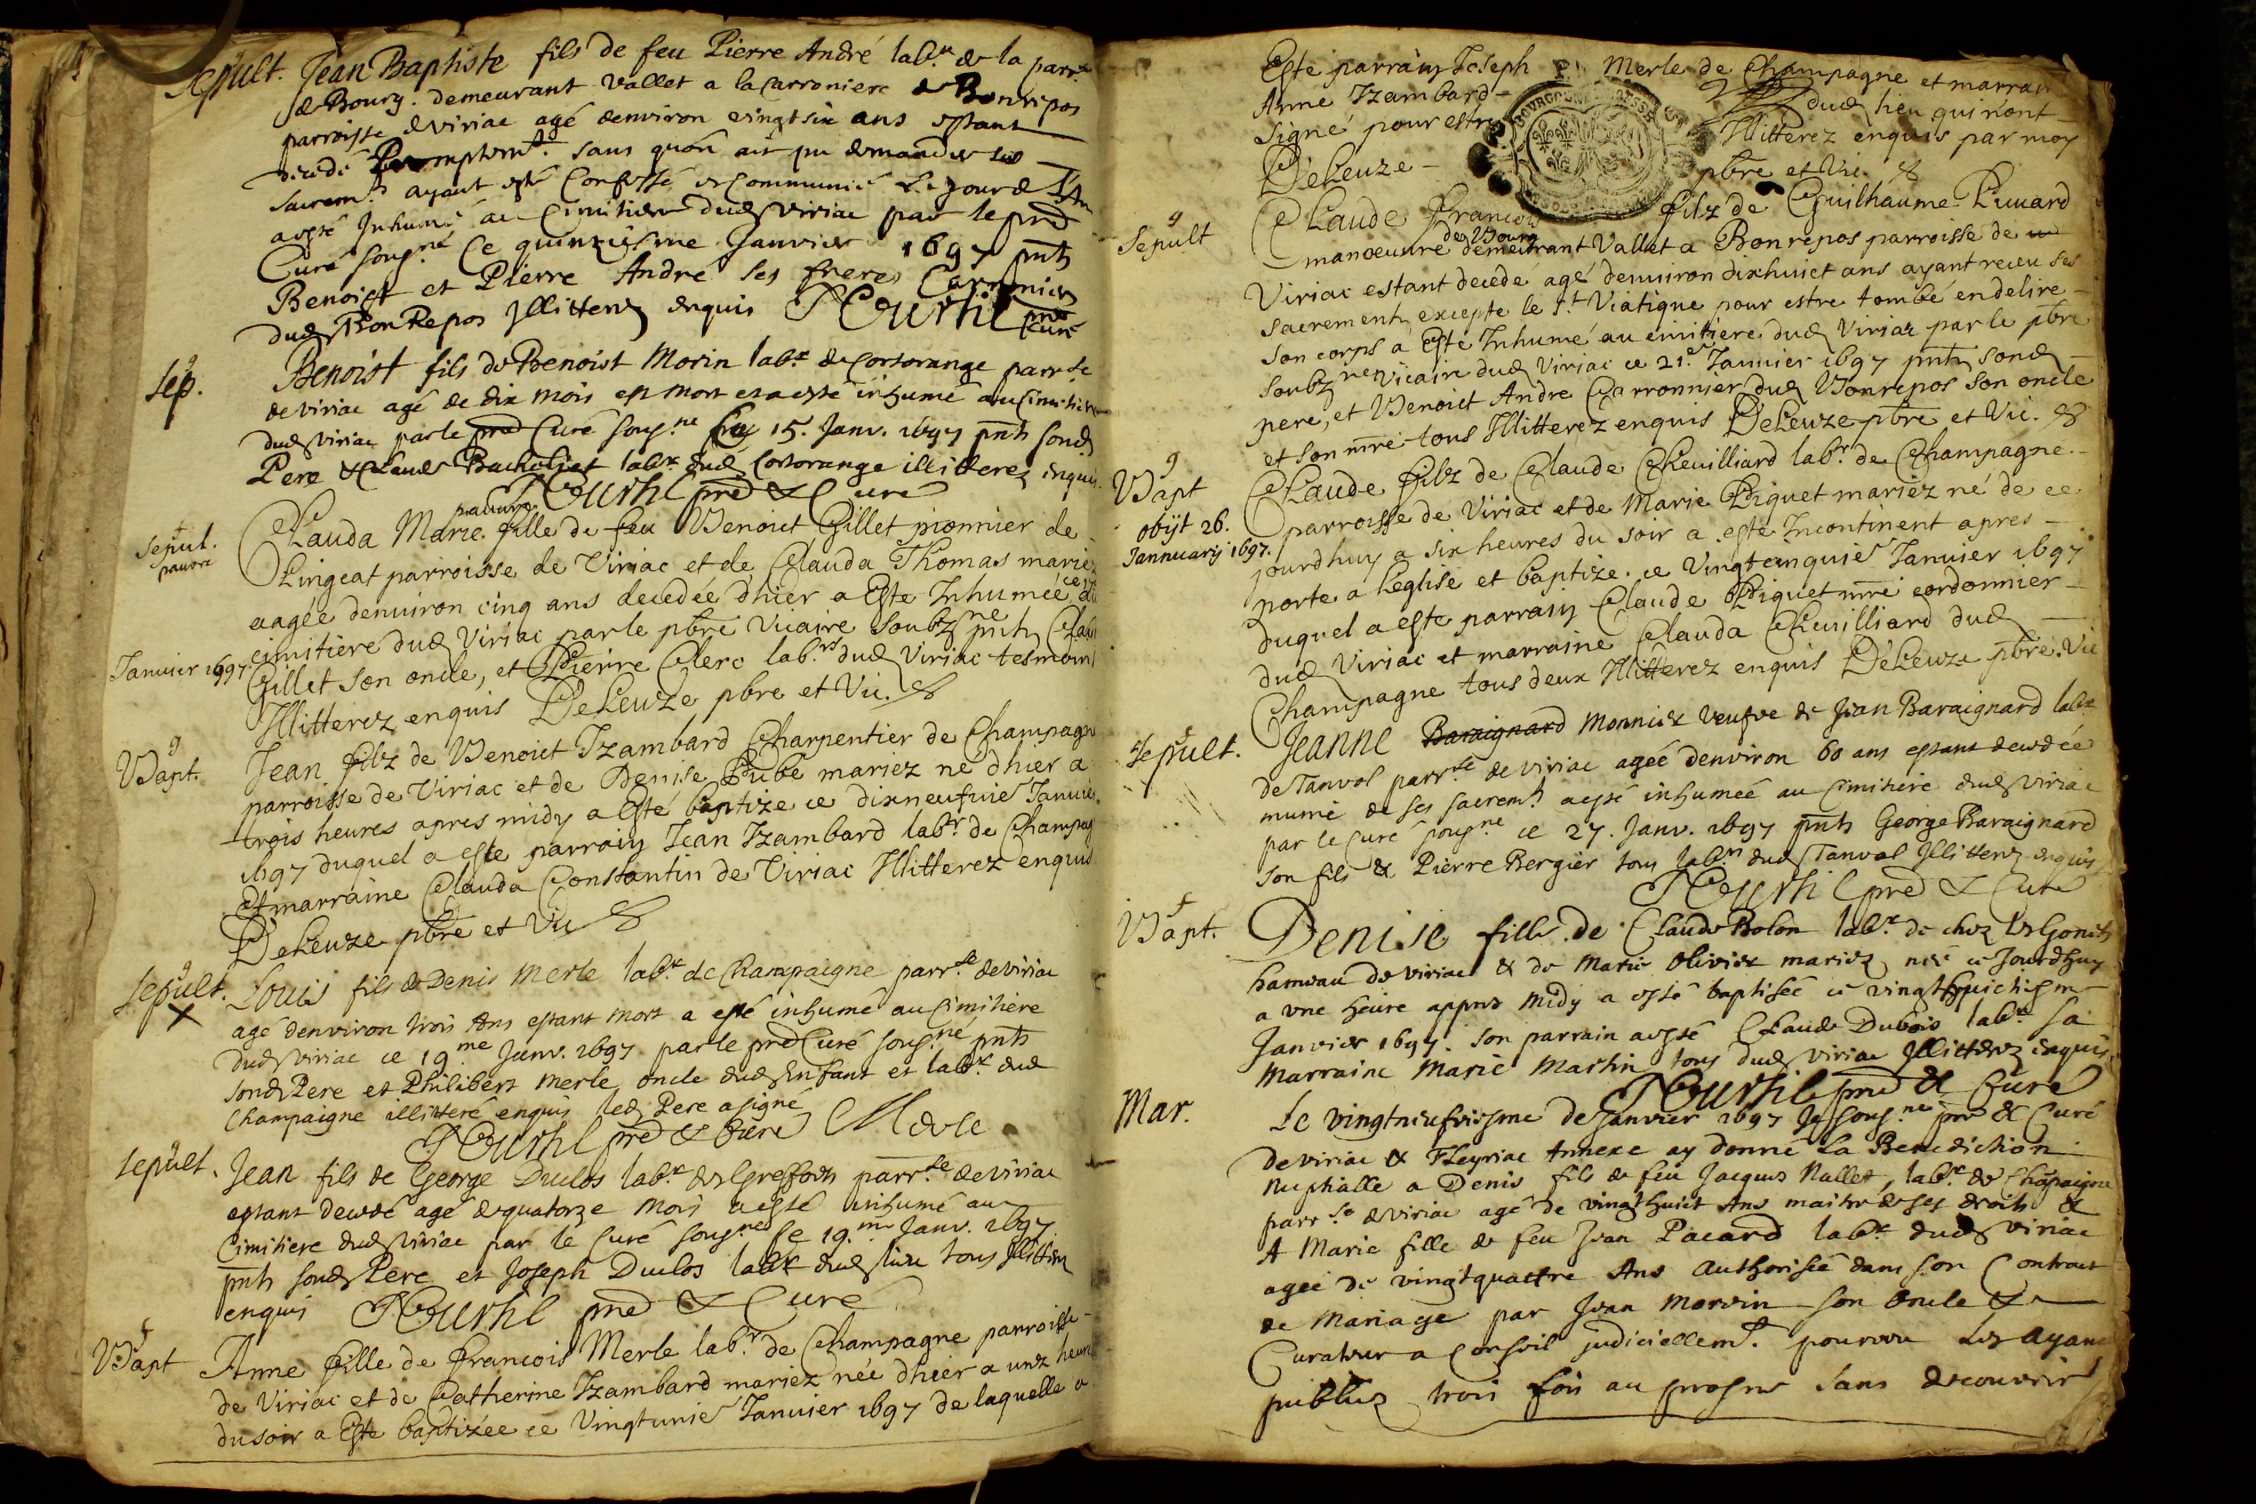 Sepult. Jean Baptiste fils de feu Pierre André lab.r de la parr.e
de Bourg. demeurant vallet a la Carroniere de Bonrepos
parroisse de viriac agé denviron vingt six ans estant
decedé promptem.t sans quon ait pu demander ses
sacrem.ts ayant esté Confessé et Communié le jour de
a esté Inhumé au Cimitiere dud viriac par le pred
Curé sous.né Ce quinziesme Janvier 1697 pnts
Benoist et Pierre André ses freres Carroniers
dud BonRepos Illitterez enquis pre Curé
sep. Benoist fils de Benoist Morin lab.r de Cortorange parr.se
de viriac agé de dix mois est mort et a esté inhumé au Cimitiere
dud viriac par le pred Curé sous.né Ce 15. Janv. 1697 pnts sond
Pere & Claude lab.r dud Cortorange illitterez enquis
pred & Curé
Sepul. pauvre
Clauda Marie pauvre fille de feu Benoict Gillet pionnier de
Lingeat parroisse de Viriac et de Clauda Thomas mariez
aagée denuiron cinq ans decedée dhier a Este Inhumée ce
Januier 1697 cimitiere dud Viriac par le pbre Vicaire soubz.né pnts
Gillet son oncle, et Pierre Clerc lab.rs dud Viriac tesmoins
Illitterez enquis DeLeuze pbre et Vic.
Bapt. Jean filz de Benoict Izambard Charpentier de Champagne
parroisse de Viriac et de Denise Pubé mariez né dhier a
trois heures apres midy a Esté baptize ce dixneufuie Januier
1697 duquel a este parrain Jean Izambard lab.r de Champag
Et marraine Clauda Constantin de Viriac Illitterez enquis
DeLeuze pbre et Vic
sepult. Louis fils de Denis Merle lab.r de Champaigne parr.se de viriac
agé denviron trois Ans estant mort a esté inhumé au Cimitiere
dud viriac ce 19.me Janv. 1697 par le pred Curé sous.né pnts
sond Pere et Philibert Merle oncle dud Enfant et lab.r dud
Champaigne illitteré enquis led Pere a signé
pred & Curé Merle
sepult. Jean fils de George Duclos lab.r des Greffets parr.se de viriac
estant decedé agé de quatorze mois a esté inhumé au
Cimitiere dud viriac par le Curé sous.né le 19.me Janv. 1697
pnts sond Pere et Joseph Duclos lab.r dud lieu tous Illitterez
enquis pred & Curé
Bapt Anne fille de François Merle lab.r de Champagne parroisse
de Viriac et de Catherine Izambard mariez née dhier a unze heures
du soir a Este baptizée ce Vingtunie Januier 1697 de laquelle a
Este parrain Joseph Merle de Champagne et marraine
Anne Izambard dud lieu qui n'ont
signé pour estre Illitterez enquis par moy
DeLeuze pbre et Vic.
Sepult Claude François filz de Guilhaume Puuard
manoeuure de Bourg demeurant Vallet a Bonrepos parroisse de
Viriac estant decedé agé denuiron dixhuict ans ayant receu ses
sacrements excepte le s.t Viatique pour estre tombé en delire
son corps a Este Inhumé au cimitiere dud Viriac par le pbre
soubz.né Vicaire dud Viriac ce 21.e Januier 1697 pnts sond
pere, et Benoict André Carronnier dud Bonrepos son oncle
et son mre tous Illitterez enquis DeLeuze pbre et Vic.
Bapt Claude filz de Claude Cheuilliard lab.r de Champagne
obijt 26. parroisse de Viriac et de Marie Piguet mariez né de ce
Jannuarij 1697. jourdhuy a six heures du soir a esté Incontinent apres
porte a Leglise et baptize ce Vingtcinquie Januier 1697
duquel a este parrain Claude Piguet mre cordonnier
dud Viriac et marraine Clauda Cheuilliard dud
Champagne tous deux Illitterez enquis DeLeuze pbre. Vic
sepult. Jeanne Baraignard Monnier veufve de Jean Baraignard lab.r
de Tanvol parr.se de viriac agée denviron 60 ans estant decedée
munie de ses sacrem.ts a esté inhumée au Cimitiere dud viriac
par le Curé sous.né ce 27. Janv. 1697 pnts George Baraignard
son fils & Pierre Bergier tous lab.rs dud Tanvol Illitterez enquis
pred & Curé
Bapt. Denise fille de Claude Bolon lab.r de chez les Gonets
hameau de viriac & de Marie Olivier mariez née ce Jourdhuy
a une heure appres midy a esté baptisée ce vingthuictiesme
Janvier 1697. son parrain a esté Claude Dubois lab.r sa
Marraine Marie Martin tous dud viriac Illitterez enquis
pred & Curé
Mar. Le vingtneufviesme de Janvier 1697 Je sous.né pre & Curé
de viriac & Fleyriac Annexe ay donné La Benediction
Nuptialle a Denis fils de feu Jacques Nallet, lab.r de Chapaigne
parr.se de viriac agé de vingthuict Ans maitre de ses droits &
A Marie fille de feu Jean Pacard lab.r dud viriac
agée de vingtquattre Ans Authorisée dans son Contract
de Mariage par Jean Morvin son Oncle &
Curateur a Conseil judiciellem.t pourvue Les ayant
publiez trois fois au prosne sans decouvrir